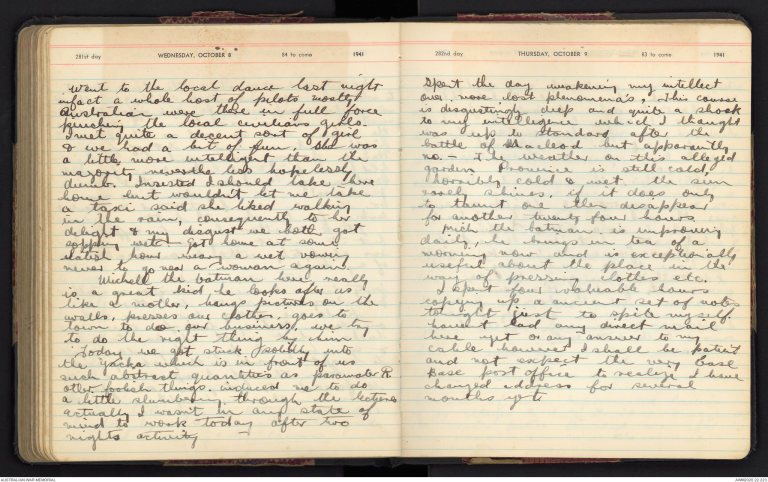 281st day WEDNESDAY, OCTOBER 8 84 to come 1941
Went to the local dance last night
infact a whole host of pilots mostly
Australian were there in full force
pinching the local civilians girls.
I met quite a decent sort of girl
& we had a bit of fun, she was
a little more intelligent than the
majority, nevertheless hopelessly
dumb. Insisted I should take her
home but wouldn't let me take
a taxi said she liked walking
in the rain, consequently to her
delight & my disgust we both got
sopping wet. Got home at some
latish hour weary & wet vowing
never to go near a woman again.
Michell the batman here really
is a great kid he looks after us
like a mother, hangs pictures on the
walls, presses our clothes, goes to
town to do our business, we try
to do the right thing by him
Today we got stuck solidly into
the Yacka which is in front of us
such abstract quantities as
other foolish things induced me to do
a little slumbering through the lectures
actually I wasn't in any state of
mind to work today after two
nights activity
282nd day THURSDAY, OCTOBER 9 83 to come 1941
Spent the day awakening my intellect
over more lost phenomena's, This course
is disgustingly deep and quite a shock
to my intellegence which I thought
was up to standard after the
battle of Macleod but apparently
no. - The weather on this alleged
garden Province is still cold,
horribly cold & wet. the sun
rarely shines, if it does only
to taunt one then disappear
for another twenty four hours
Mich the batman is improving
daily, he brings in tea of a
morning now and is exceptionally
useful about the place in the
way of pressing clothes etc.
I spent four valuable hours
copying up a ancient set of notes
tonight just to spite myself.
havent had any direct mail
here yet or any answer to my
cable however I shall be patient
and not expect the very
Base post office to realize I have
changed address for several
months yet
AUSTRALIAN WAR MEMORIAL